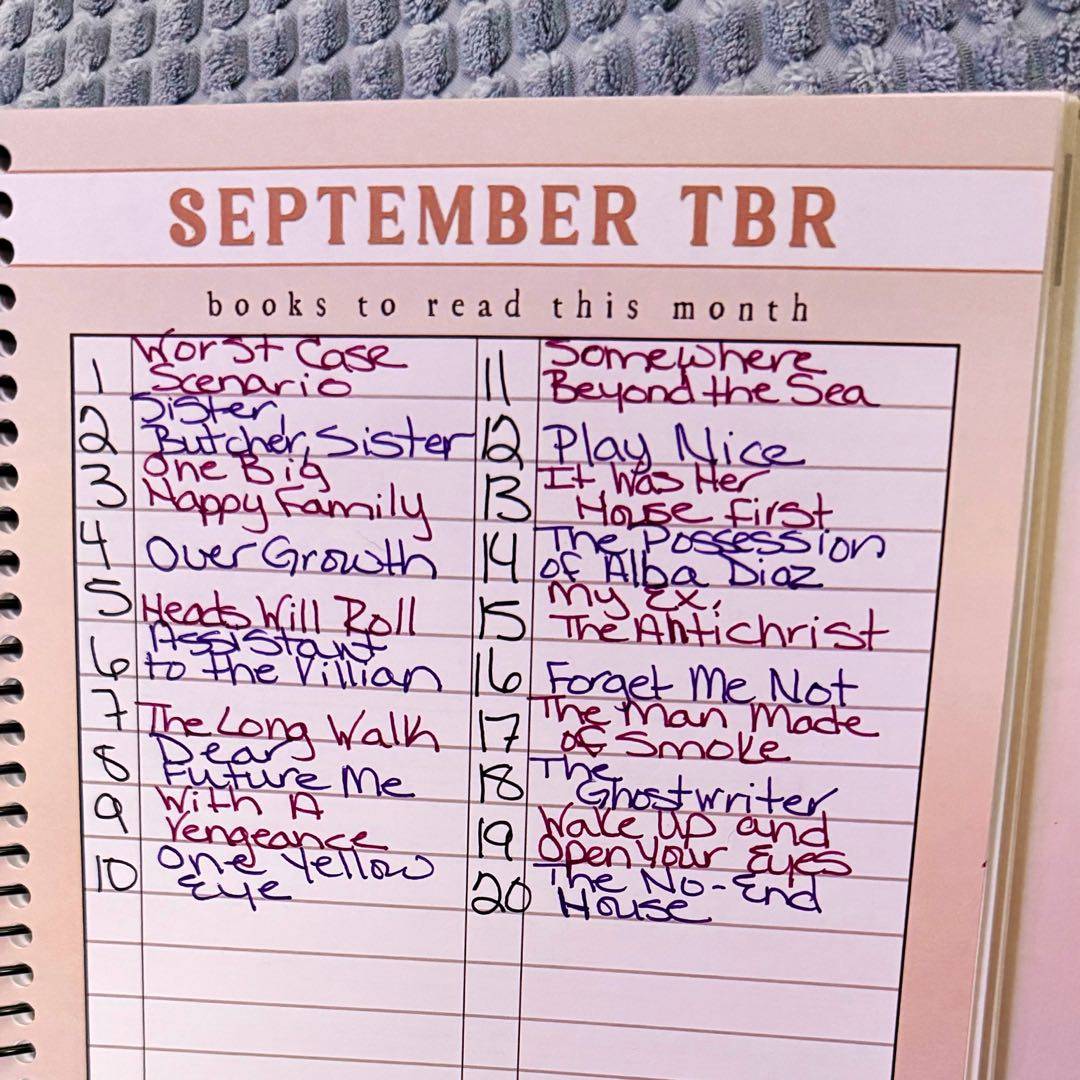 SEPTEMBER TBR
books to read this month
1 Worst Case
Scenario
2 Sister,
Butcher, Sister
3 One Big
Happy Family
4 Over Growth
5 Heads Will Roll
6 Assistant
to the Villian
7 The Long Walk
8 Dear
Future Me
9 With A
Vengeance
10 One Yellow
Eye
11 Somewhere
Beyond the Sea
12 Play Nice
13 It Was Her
House First
14 The Possession
of Alba Diaz
15 My Ex,
The Antichrist
16 Forget Me Not
17 The Man Made
of Smoke
18 The
Ghostwriter
19 Wake Up and
Open Your Eyes
20 The No-End
House